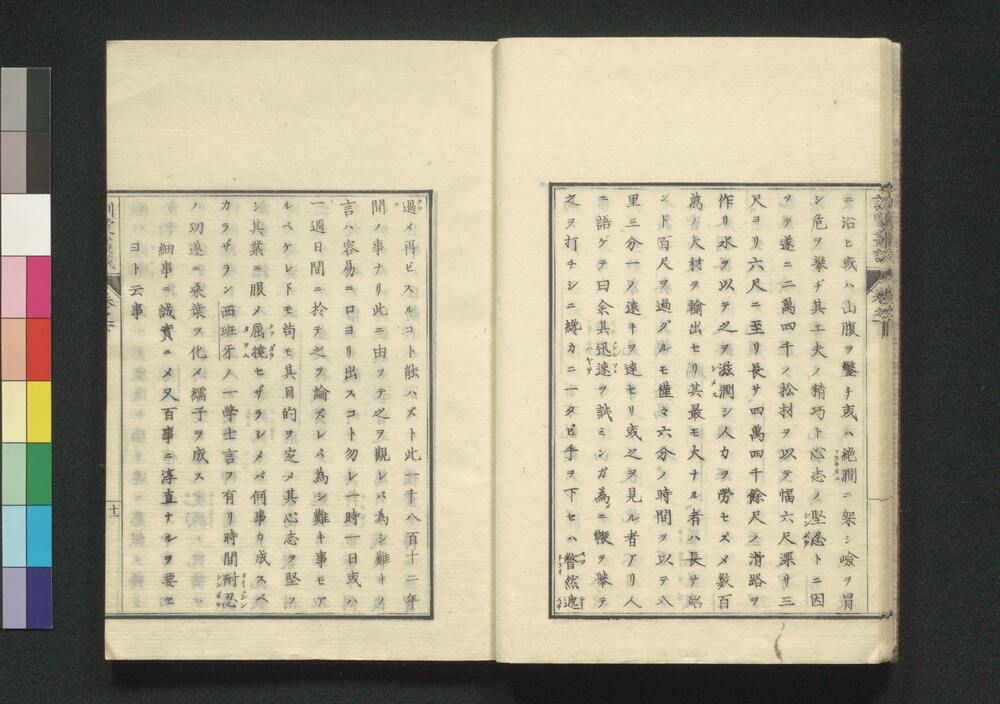 ニ沿ヒ或ハ山腹ヲ鑿チ或ハ絶澗ニ架シ嶮ヲ冐
シ危ヲ攀ヂ其工夫ノ精巧ト心志ノ堅忍トニ因
ツテ遂ニ二萬四千ノ松材ヲ以テ幅六尺深サ三
尺ヨリ六尺ニ至リ長サ四萬四千餘尺ノ滑路ヲ
作リ水ヲ以テ之ヲ滋潤シ人力ヲ勞セズメ數百
萬ノ大材ヲ輸出セリ其最モ大ナル者ハ長サ殆
ンド百尺ヲ過グルモ僅々六分ノ時間ヲ以テ八
里三分一ノ遠キヲ達セリ或之ヲ見ル者アリ人
ニ語ゲテ曰余其迅速ヲ試ミンガ為ニ鞭ヲ擧テ
之ヲ打チシニ纔カニ一タビ手ヲ下セハ瞥然
過メ再ビスルコト能ハズト此一千八百十二年
間ノ事ナリ此ニ由ツテ之ヲ觀レバ為シ難キノ
言ハ容易ニ口ヨリ出スコト勿レ一時一日或ハ
一週日間ニ於テ之ヲ論ズレバ為シ難キ事モア
ルベケレドモ苟モ其目的ヲ定メ其心志ヲ堅フ
シ其業ニ服メ屈撓セザランメバ何事カ成スベ
カラザラン西班牙ノ一學士言フ有リ時間耐忍
ハ功遂ニ桑葉ヲ化メ繻子ヲ成ス
細事ニ誠實ニメ又百事ニ淳直ナルヲ要セ
ヨト云事
十